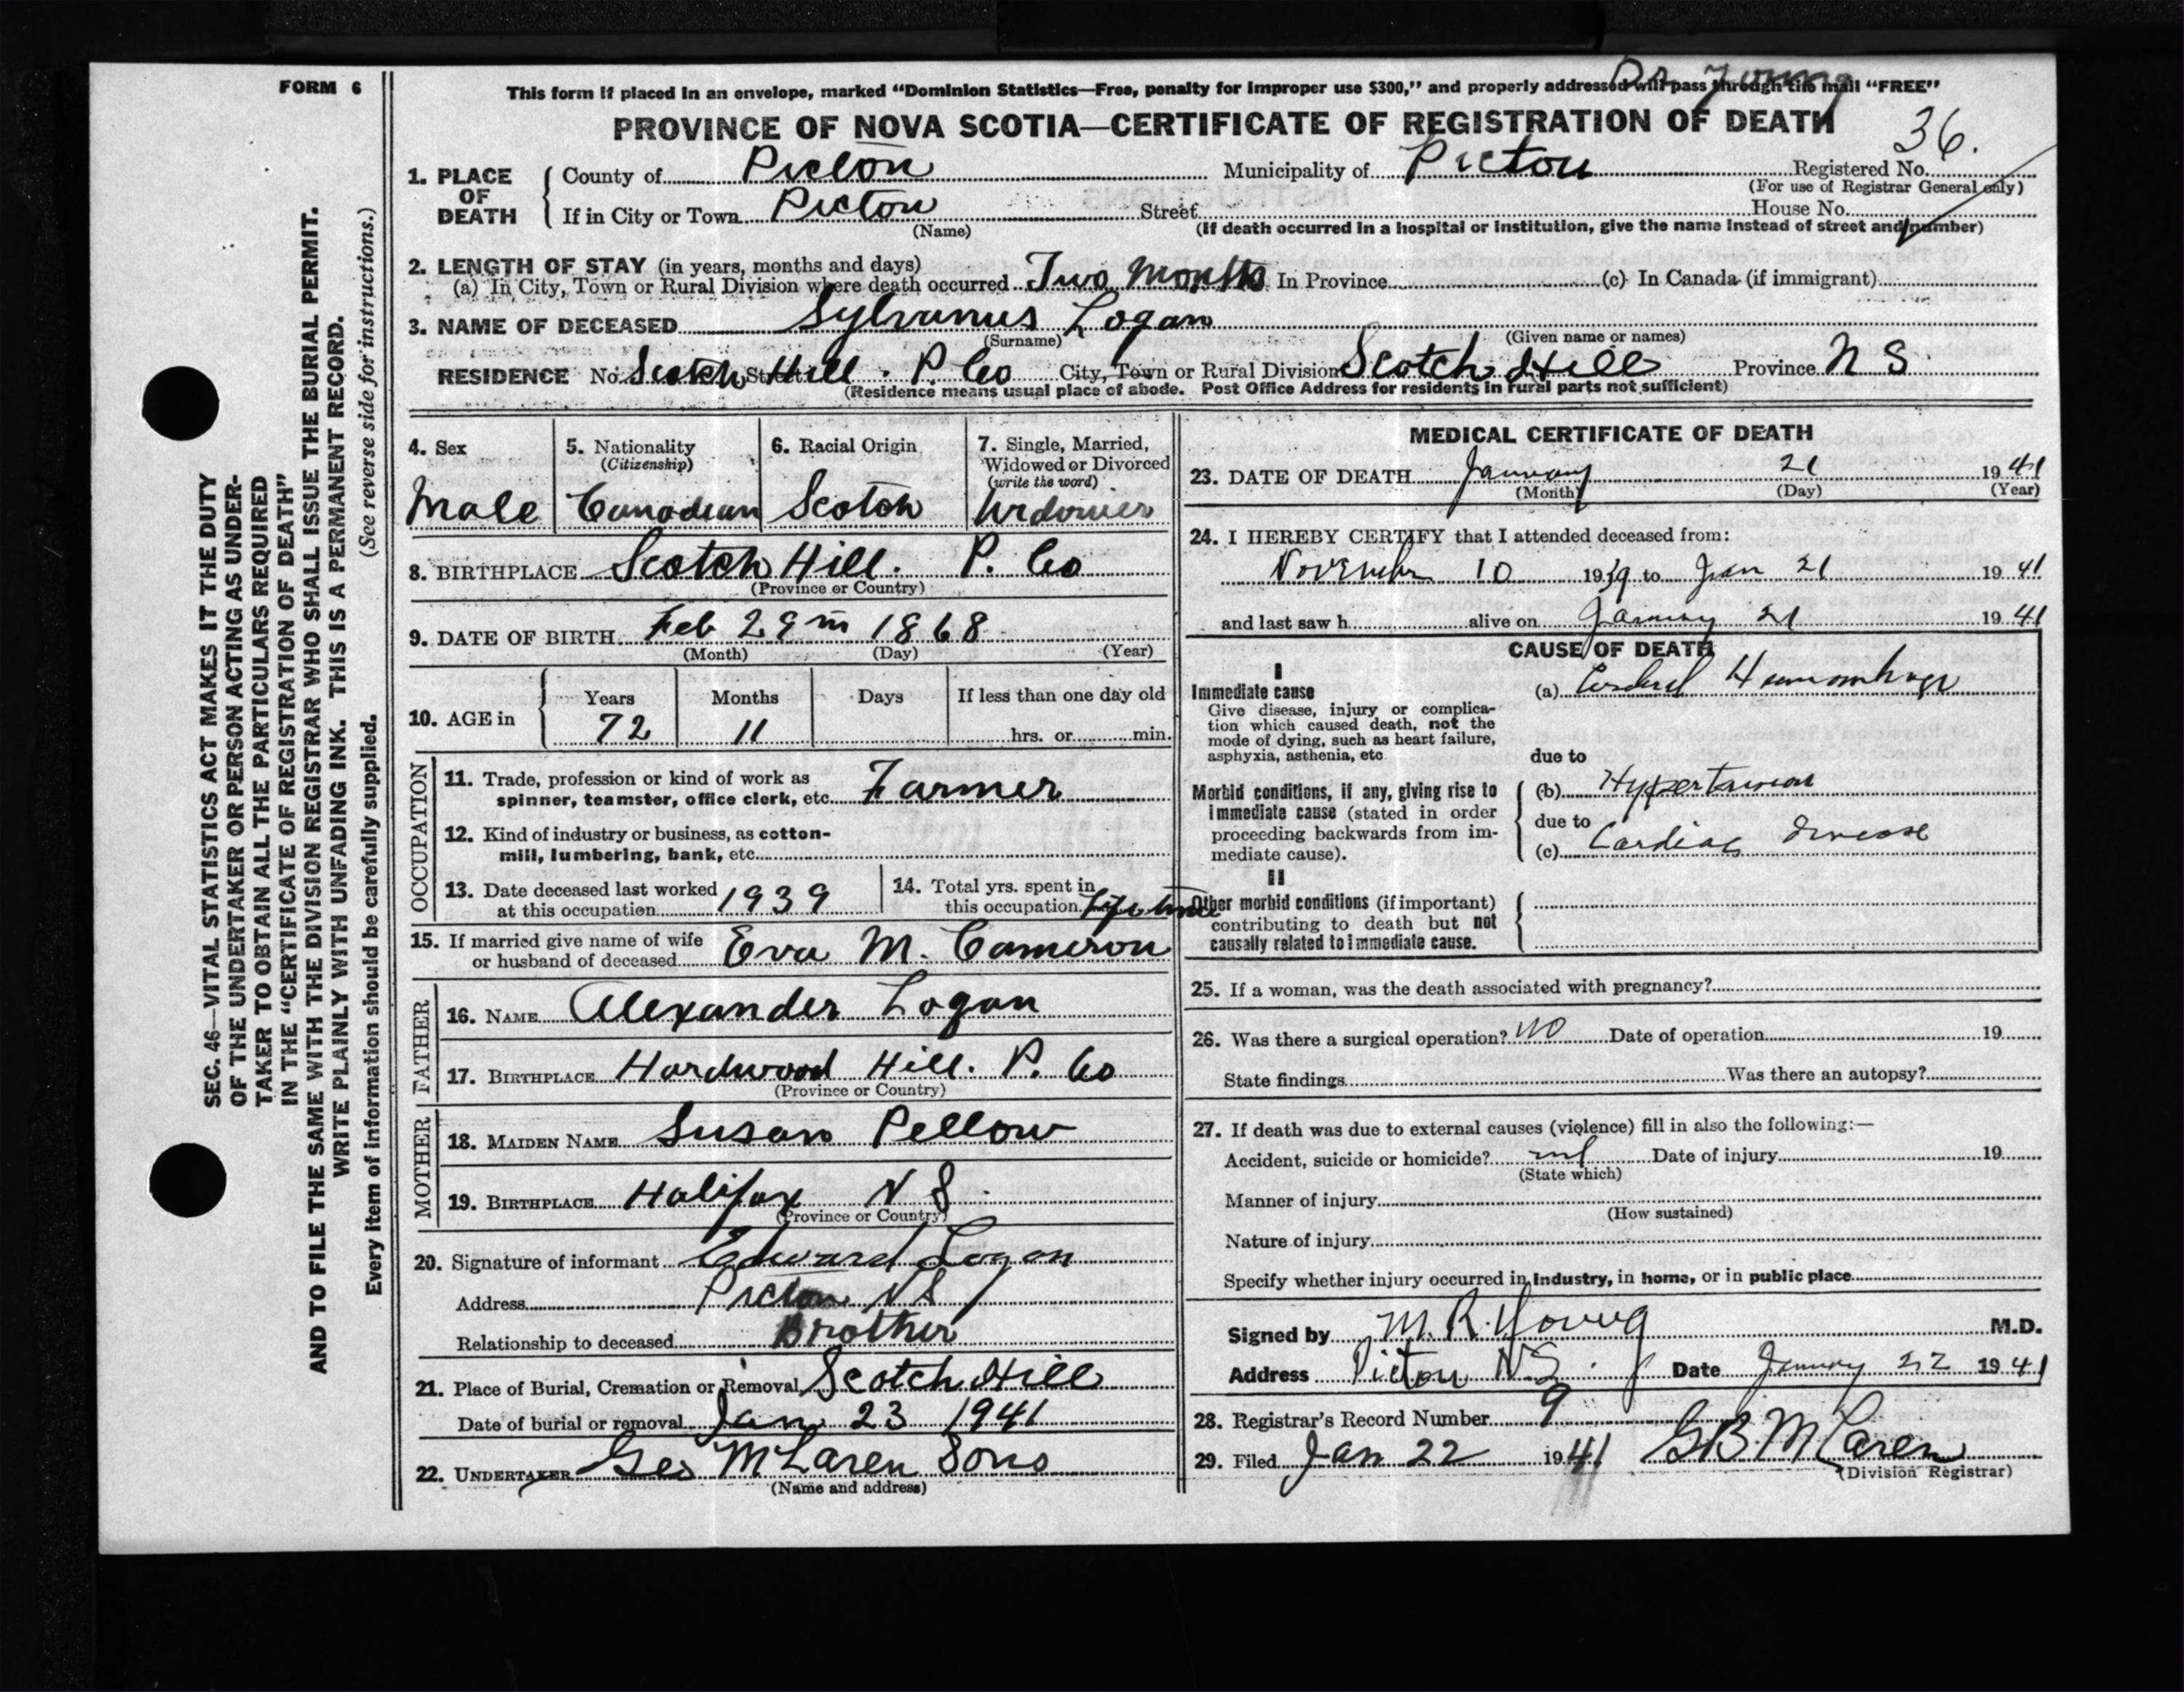 FORM 6
Dr Young
This form if placed in an envelope, marked "Dominion Statistics—Free, penalty for improper use $300," and properly addressed will pass through the mail "FREE"
PROVINCE OF NOVA SCOTIA—CERTIFICATE OF REGISTRATION OF DEATH
36.
1. PLACE OF DEATH County of Pictou Municipality of Pictou Registered No.
(For use of Registrar General only)
If in City or Town Pictou Street House No.
(Name) (If death occurred in a hospital or institution, give the name instead of street and number)
2. LENGTH OF STAY (in years, months and days)
(a) In City, Town or Rural Division where death occurred Two Months In Province (c) In Canada (if immigrant)
3. NAME OF DECEASED Sylvanus Logan
(Surname) (Given name or names)
RESIDENCE No. Scotch Hill. P. Co Street City, Town or Rural Division Scotch Hill Province N S
(Residence means usual place of abode. Post Office Address for residents in rural parts not sufficient)
4. Sex 5. Nationality (Citizenship) 6. Racial Origin 7. Single, Married, Widowed or Divorced (write the word)
Male Canadian Scotch Widower
8. BIRTHPLACE Scotch Hill. P. Co
(Province or Country)
9. DATE OF BIRTH Feb 29th 1868
(Month) (Day) (Year)
10. AGE in Years Months Days If less than one day old
72 11 hrs. or min.
OCCUPATION
11. Trade, profession or kind of work as
spinner, teamster, office clerk, etc. Farmer
12. Kind of industry or business, as cotton-
mill, lumbering, bank, etc.
13. Date deceased last worked
at this occupation 1939
14. Total yrs. spent in
this occupation Life time
15. If married give name of wife
or husband of deceased Eva M. Cameron
FATHER
16. NAME Alexander Logan
17. BIRTHPLACE Hardwood Hill. P. Co
(Province or Country)
MOTHER
18. MAIDEN NAME Susan Pellow
19. BIRTHPLACE Halifax N S.
(Province or Country)
20. Signature of informant Edward Logan
Address Pictou NS
Relationship to deceased Brother
21. Place of Burial, Cremation or Removal Scotch Hill
Date of burial or removal Jan 23 1941
22. UNDERTAKER Geo McLaren Sons
(Name and address)
MEDICAL CERTIFICATE OF DEATH
23. DATE OF DEATH January 21 1941
(Month) (Day) (Year)
24. I HEREBY CERTIFY that I attended deceased from:
November 10 1939 to Jan 21 1941
and last saw h alive on January 21 1941
CAUSE OF DEATH
I
Immediate cause
Give disease, injury or complica-
tion which caused death, not the
mode of dying, such as heart failure,
asphyxia, asthenia, etc
(a) Cerebral Hemorrhage
due to
Morbid conditions, if any, giving rise to
immediate cause (stated in order
proceeding backwards from im-
mediate cause).
(b) Hypertension
due to
(c) Cardiac disease
II
Other morbid conditions (if important)
contributing to death but not
causally related to immediate cause.
25. If a woman, was the death associated with pregnancy?
26. Was there a surgical operation? NO Date of operation 19
State findings Was there an autopsy?
27. If death was due to external causes (violence) fill in also the following:—
Accident, suicide or homicide? Date of injury 19
(State which)
Manner of injury
(How sustained)
Nature of injury
Specify whether injury occurred in industry, in home, or in public place
Signed by M. R. Young M.D.
Address Pictou N.S. Date January 22 1941
28. Registrar's Record Number 9
29. Filed Jan 22 1941 G B McLaren
(Division Registrar)
SEC. 46—VITAL STATISTICS ACT MAKES IT THE DUTY
OF THE UNDERTAKER OR PERSON ACTING AS UNDER-
TAKER TO OBTAIN ALL THE PARTICULARS REQUIRED
IN THE "CERTIFICATE OF REGISTRATION OF DEATH"
AND TO FILE THE SAME WITH THE DIVISION REGISTRAR WHO SHALL ISSUE THE BURIAL PERMIT.
WRITE PLAINLY WITH UNFADING INK. THIS IS A PERMANENT RECORD.
Every item of information should be carefully supplied. (See reverse side for instructions.)